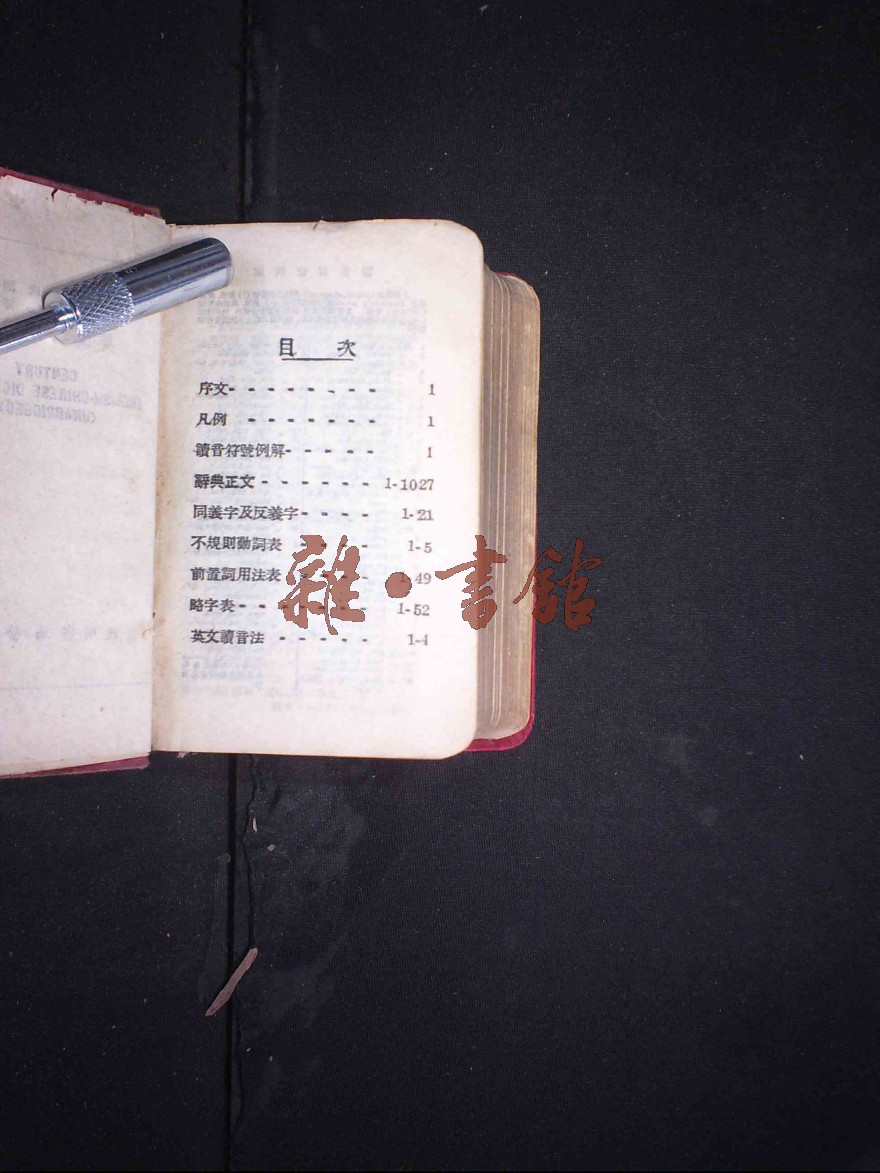 目 次
序文- - - - - - - - 1
凡例 - - - - - - - 1
讀音符號例解- - - - - - 1
辭典正文- - - - - - - 1-1027
同義字及反義字- - - - - 1-21
不規則動詞表 - - - - 1-5
前置詞用法表 - - - - 1-49
略字表- - - - - - - 1-52
英文讀音法 - - - - - 1-4
雜·書館